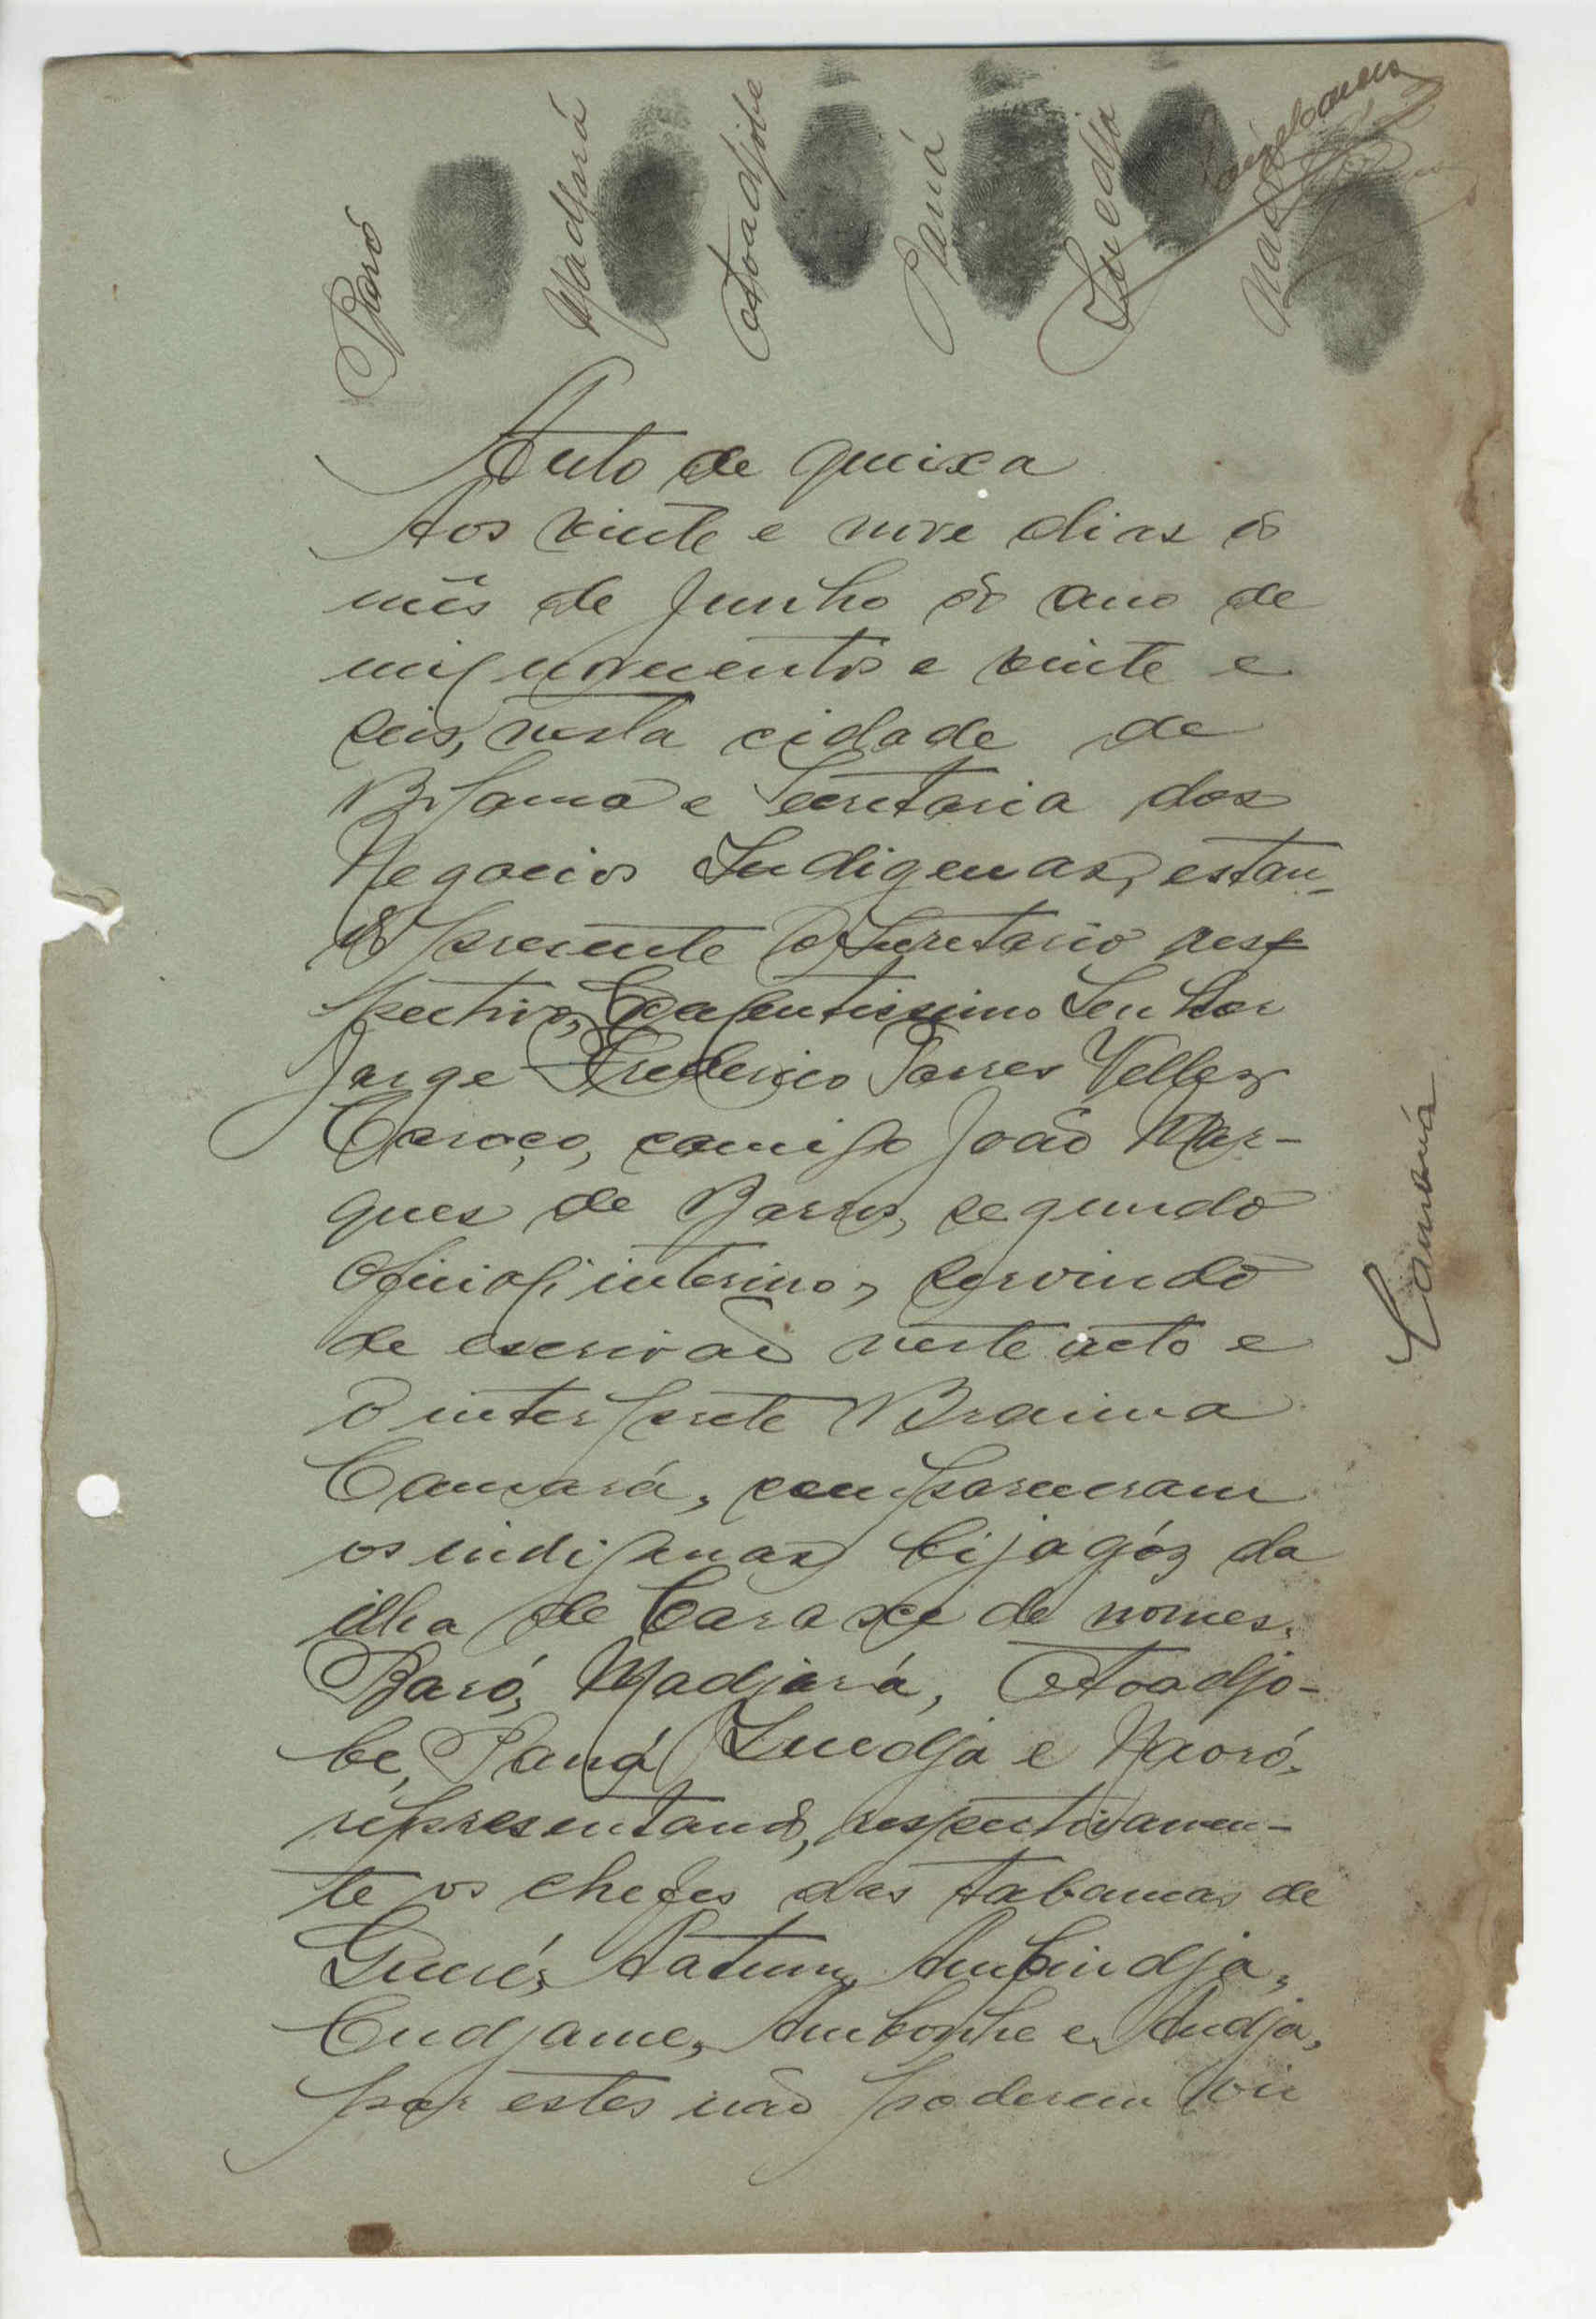 Baró
Madjará
Atoadjobe
Paná
Naoró
Auto de queixa
Aos vinte e nove dias do
mês de Junho do ano de
mil novecentos e vinte e
seis, nesta cidade de
Bolama e Secretaria dos
Negocios Indigenas, estan-
do presente o Secretario res-
pectivo, Excelentissimo Senhor
Jorge Frederico Torres Vellez
Caroço, comigo João Mar-
ques de Barros, segundo
oficial, interino, servindo
de escrivão neste acto e
o interprete Braima
Camará, compareceram
os indigenas bijagóz da
ilha de Caraxe de nomes.
Baró, Madjará, Atoadjo-
be, Paná, e Naoró,
representando, respectivamen-
te os chefes das tabancas de
Ambindja,
e
por estes não poderem vir
Camará